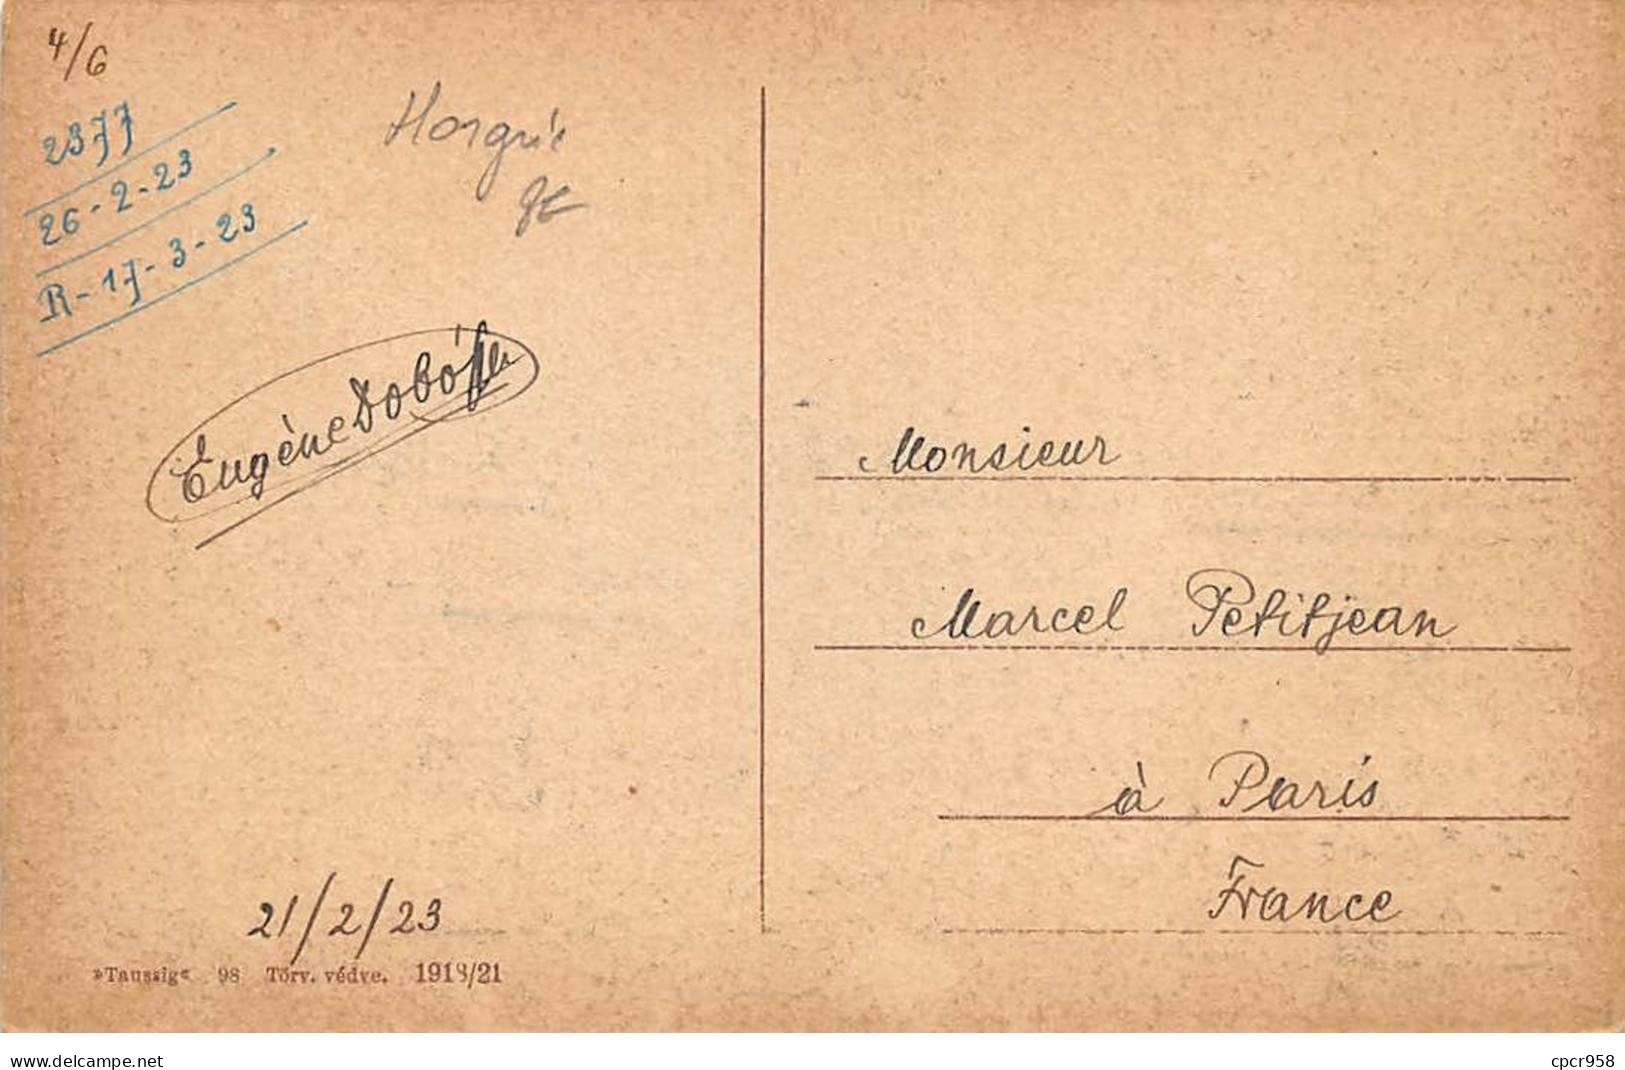 4/6
2377
26-2-23
R-17-3-23
Eugène Dobó
21/2/23
»Taussig« 98 Törv. védve. 1918/21
Monsieur
Marcel Petitjean
à Paris
France
www.delcampe.net
cpcr958